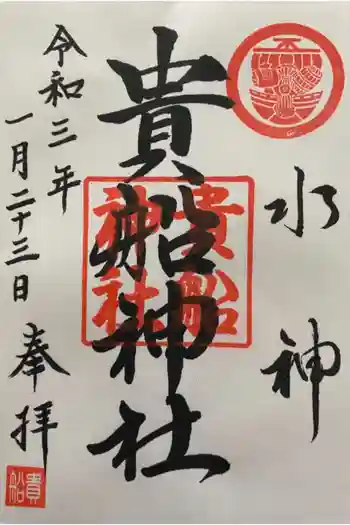 水神
貴船神社
貴船
神社
奉拝
令和三年
一月二十三日
貴船